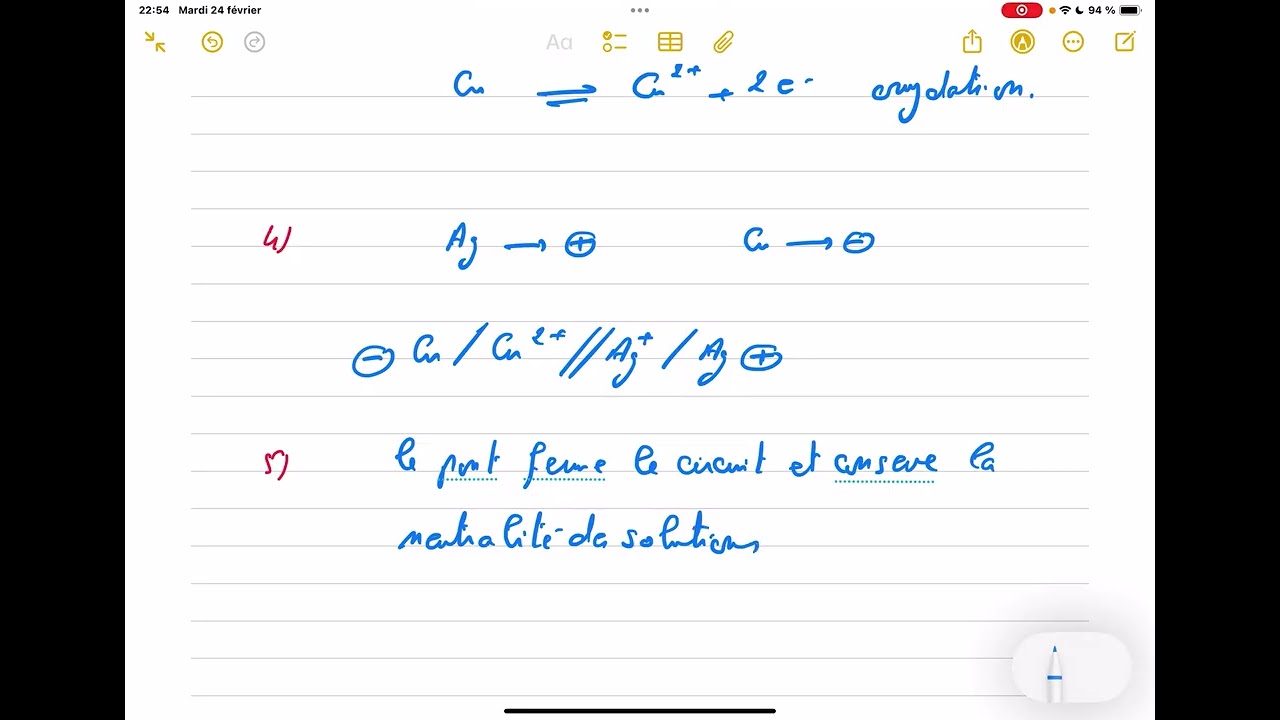 22:54 Mardi 24 février 94 %
Aa
Cu ⇌ Cu²⁺ + 2e⁻ oxydation.
4) Ag → ⊕ Cu → ⊖
⊖ Cu / Cu²⁺ // Ag⁺ / Ag ⊕
5) le pont ferme le circuit et conserve la
neutralité des solutions